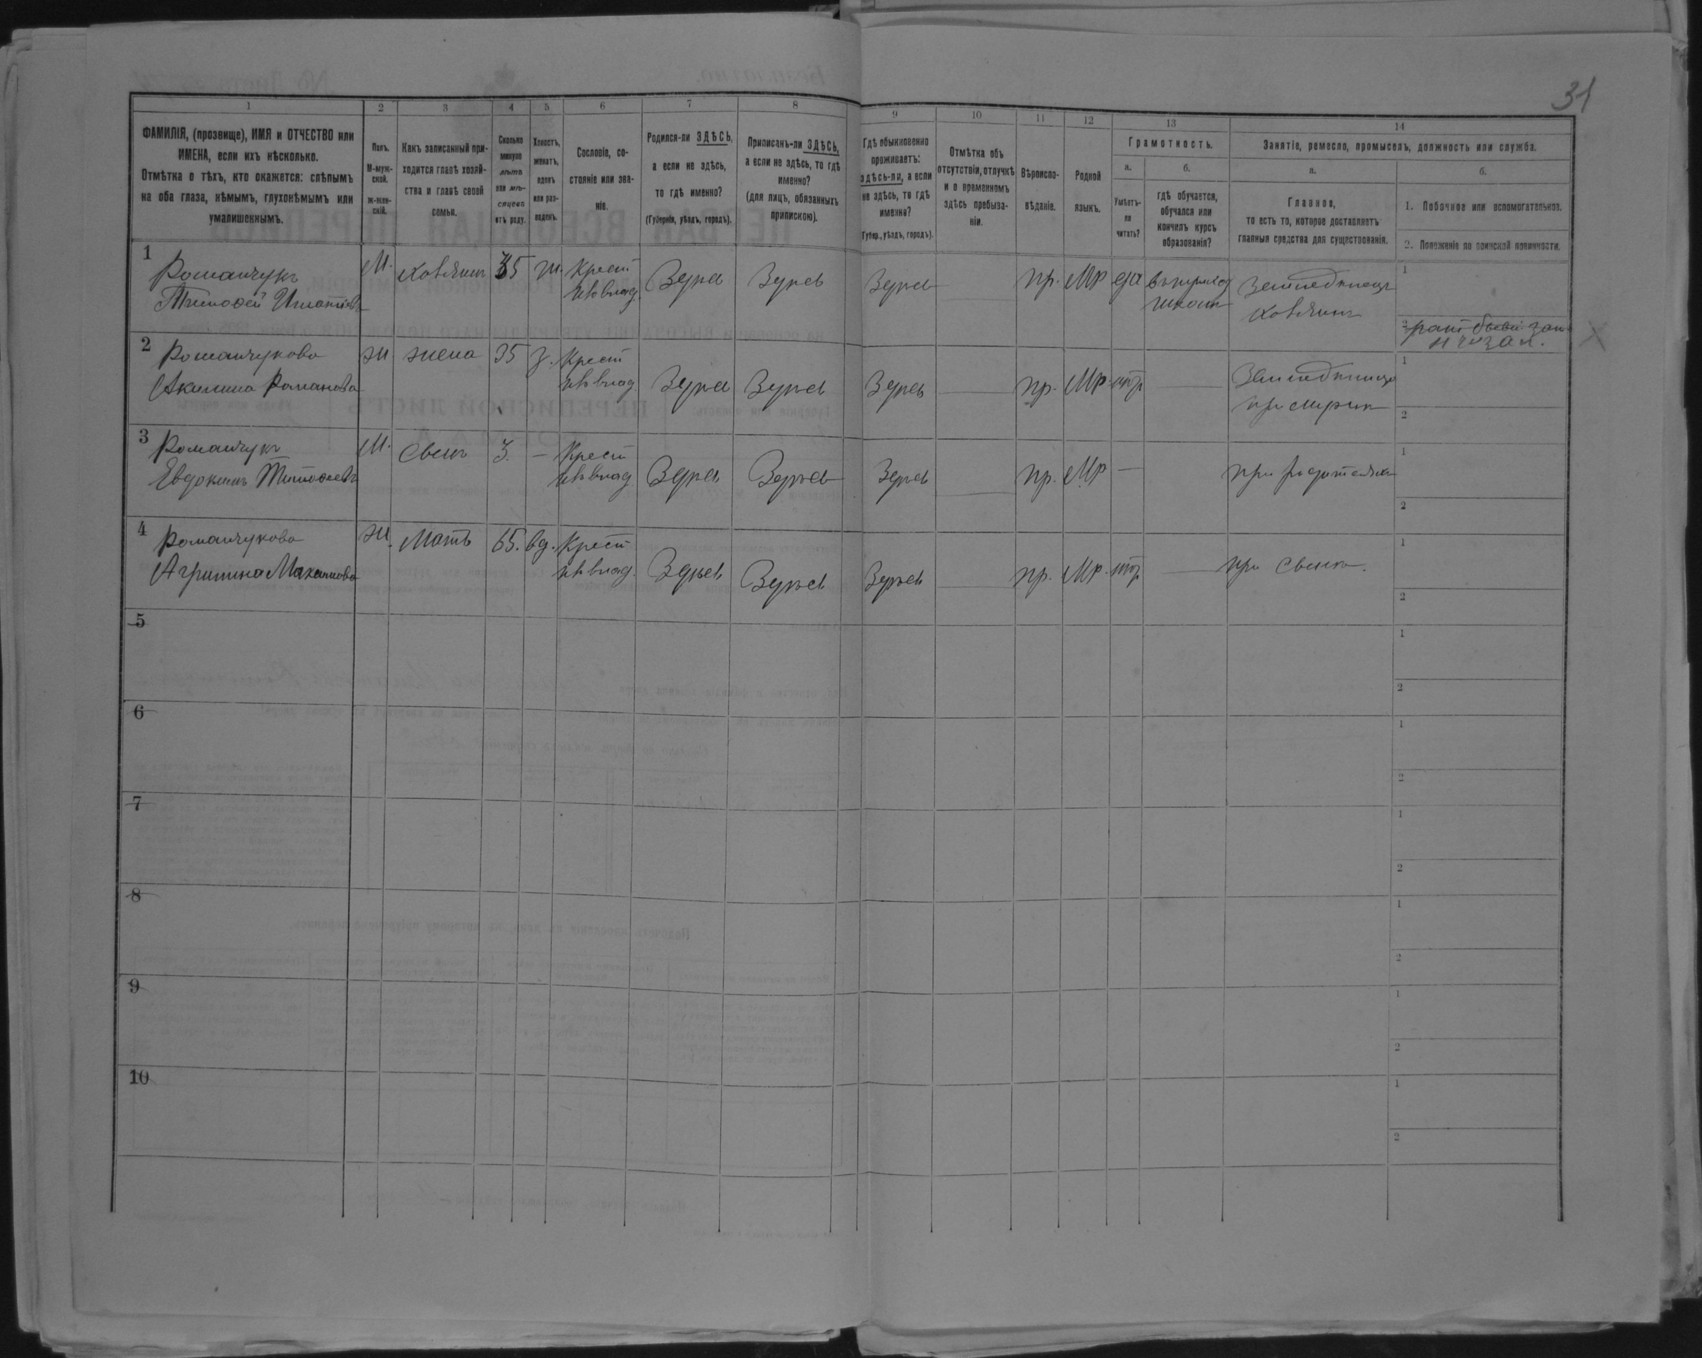 31
1
2
3
4
5
6
7
8
9
10
11
12
13
14
ФАМИЛІЯ, (прозвище), ИМЯ и ОТЧЕСТВО или
ИМЕНА, если ихъ нѣсколько.
Отмѣтка о тѣхъ, кто окажется: слѣпымъ
на оба глаза, нѣмымъ, глухонѣмымъ или
умалишеннымъ.
Полъ.
М-муж-
ской.
ж-жен-
скій.
Какъ записанный при-
ходится главѣ хозяй-
ства и главѣ своей
семьи.
Сколько
минуло
лѣтъ
или мѣ-
сяцевъ
отъ роду.
Холостъ,
женатъ,
вдовъ
или раз-
веденъ.
Сословіе, со-
стояніе или зва-
ніе.
Родился-ли ЗДѢСЬ,
а если не здѣсь,
то гдѣ именно?
(Губернія, уѣздъ, городъ).
Приписанъ-ли ЗДѢСЬ,
а если не здѣсь, то гдѣ
именно?
(для лицъ, обязанныхъ
припискою).
Гдѣ обыкновенно
проживаетъ:
здѣсь-ли, а если
не здѣсь, то гдѣ
именно?
(Губер., уѣздъ, городъ).
Отмѣтка объ
отсутствіи, отлучкѣ
и о временномъ
здѣсь пребыва-
ніи.
Вѣроиспо-
вѣданіе.
Родной
языкъ.
Грамотность.
а.
Умѣетъ-
ли
читать?
б.
гдѣ обучается,
обучался или
кончилъ курсъ
образованія?
Занятіе, ремесло, промыселъ, должность или служба.
а.
Главное,
то есть то, которое доставляетъ
главныя средства для существованія.
б.
1. Побочное или вспомогательное.
2. Положеніе по воинской повинности.
1
Романчукъ М. хозяинъ 35 ж. Крест здѣсь здѣсь здѣсь пр. Мр да
Тимофей Игнатьевъ
школѣ хозяинъ
1
2
2
Романчукова ж жена 35 з. Крест здѣсь здѣсь здѣсь пр. Мр.
Акилина Романова
1
2
3
Романчукъ М. сынъ 3. — Крест здѣсь здѣсь здѣсь пр. Мр — при родителяхъ
Евдокимъ Тимофеевъ
1
2
4
Романчукова ж. Мать 65. вд. Крест здѣсь здѣсь здѣсь пр. Мр. при сынѣ.
1
2
5
1
2
6
1
2
7
1
2
8
1
2
9
1
2
10
1
2